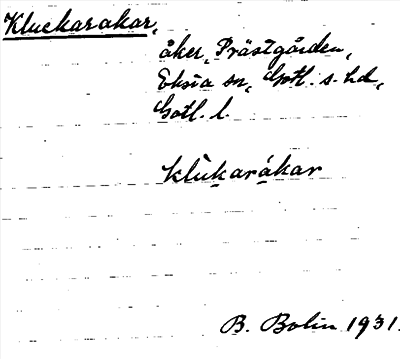 Kluckarakar,
åker, Prästgården,
Eksta sn, Gotl. s. hd,
Gotl. l.
klu̠karákar
B. Bolin 1931.